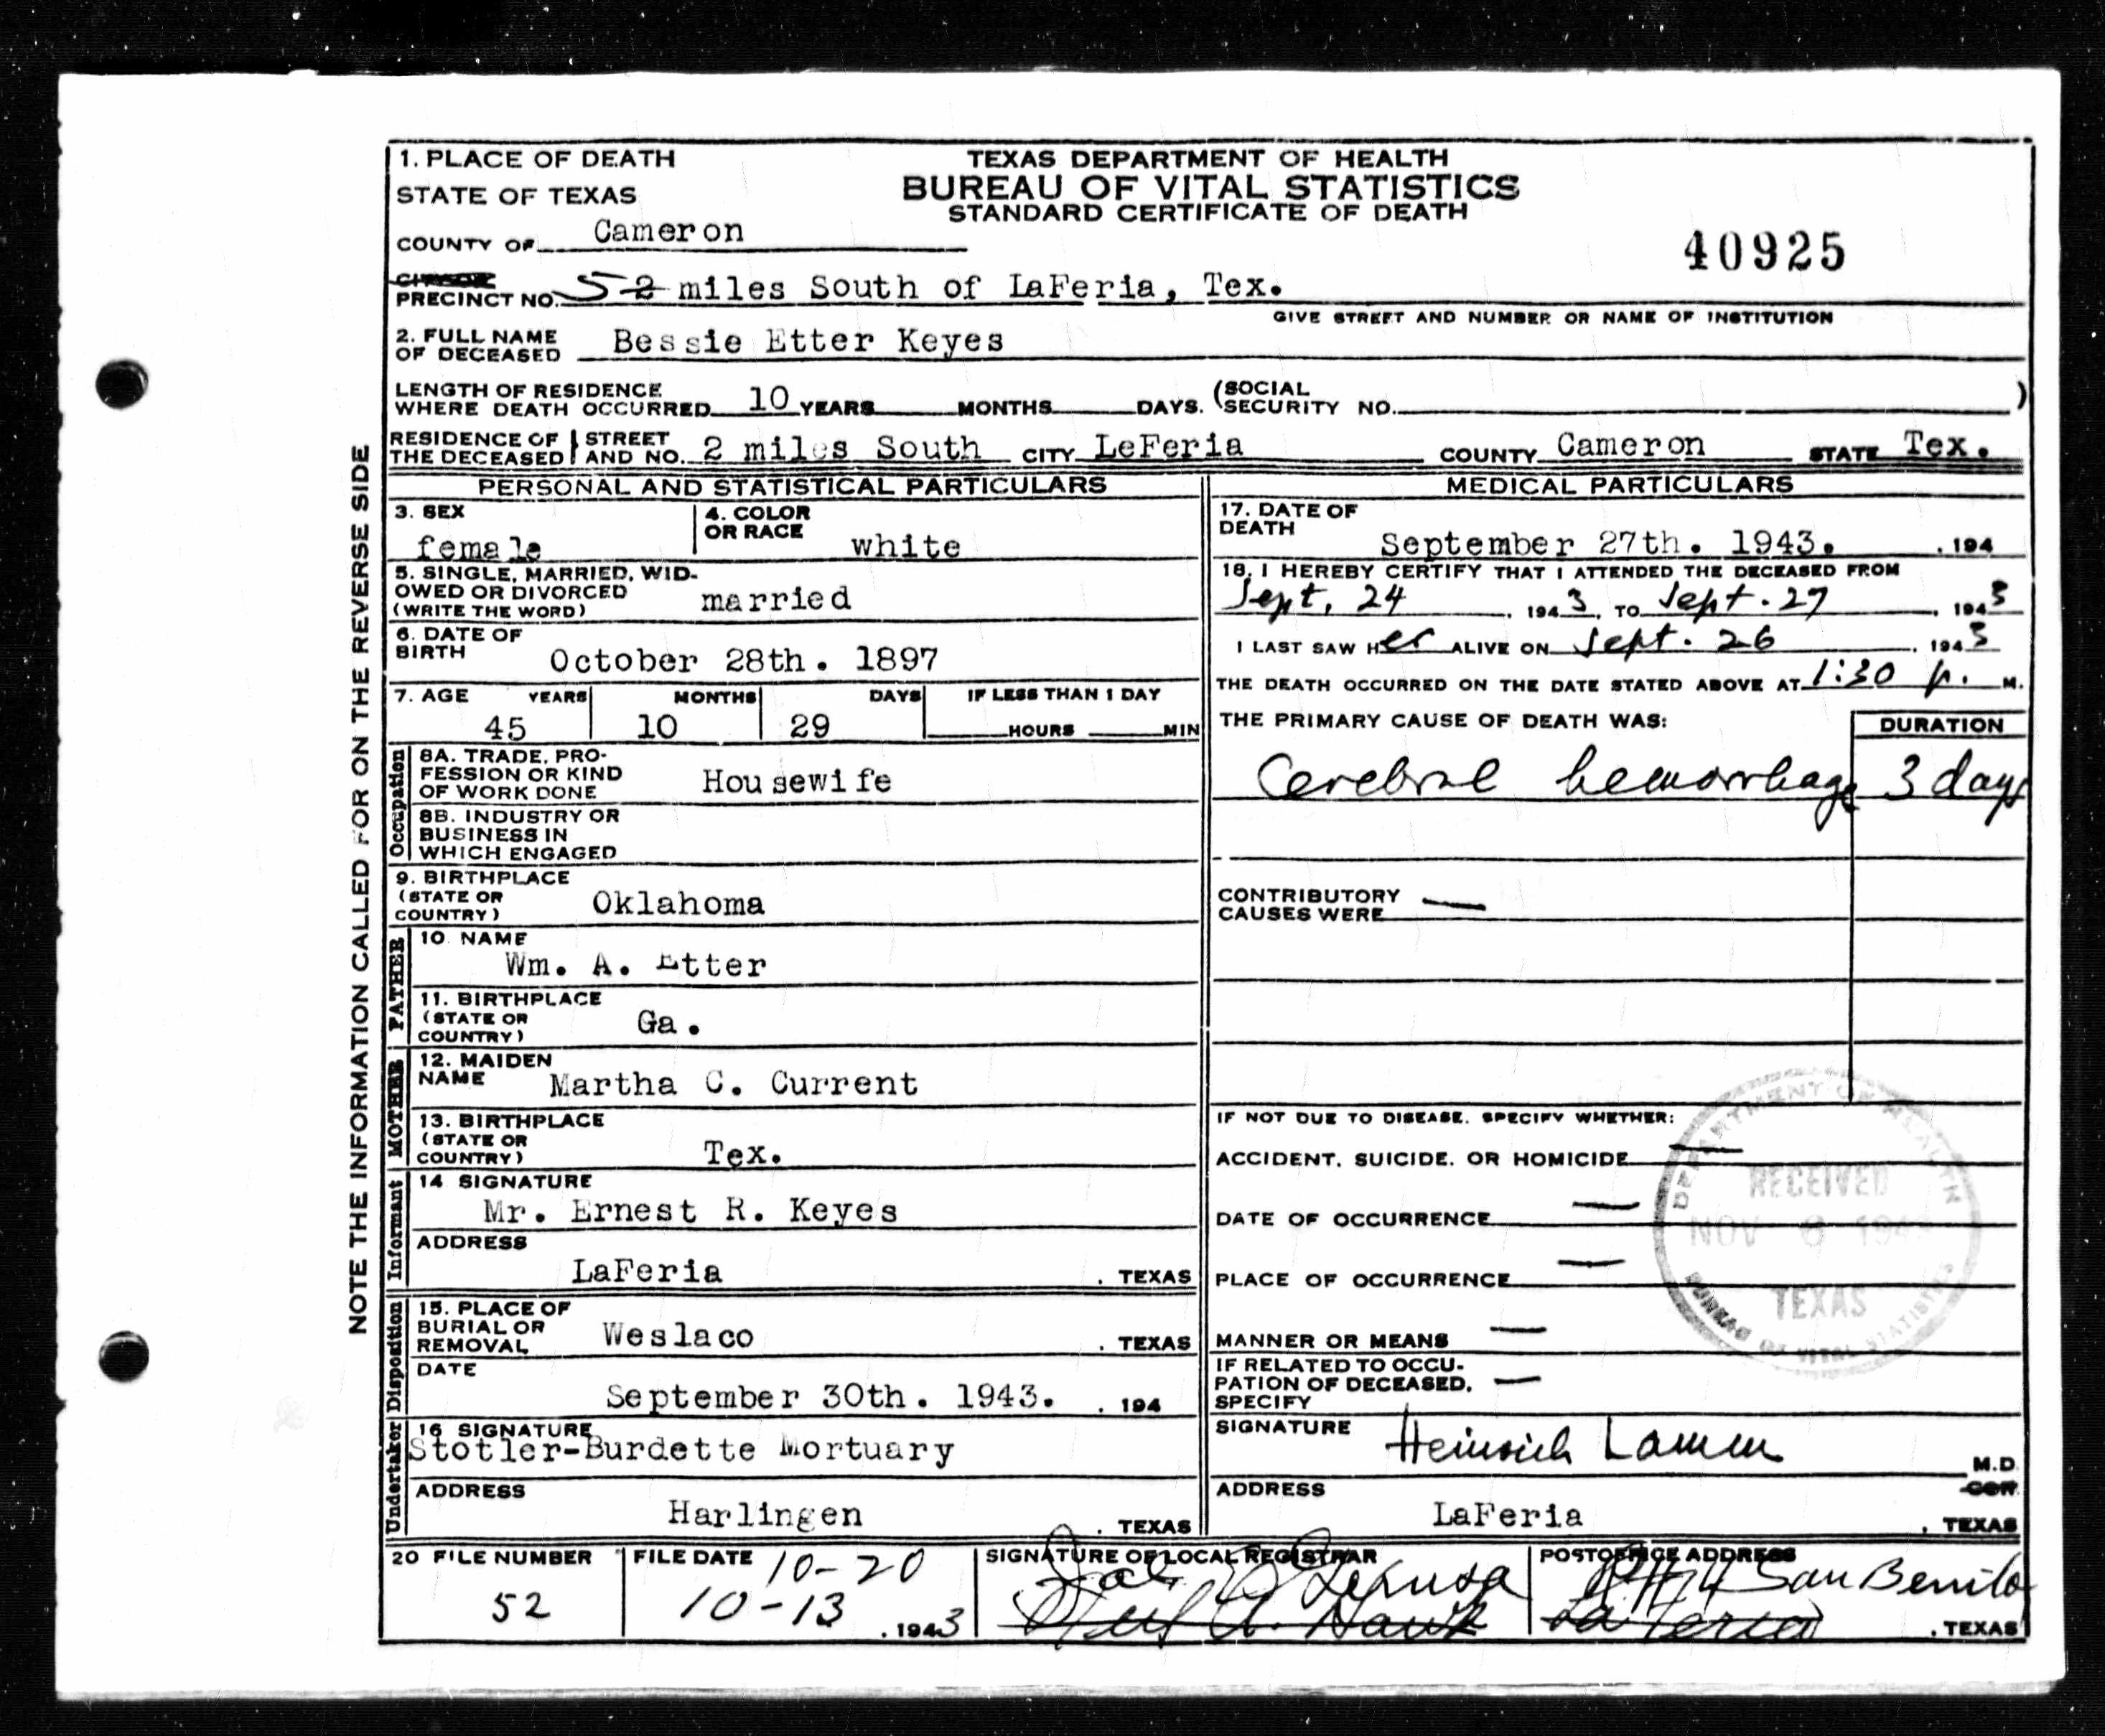 1. PLACE OF DEATH
STATE OF TEXAS
COUNTY OF Cameron
TEXAS DEPARTMENT OF HEALTH
BUREAU OF VITAL STATISTICS
STANDARD CERTIFICATE OF DEATH
40925
PRECINCT NO. 5 2 miles South of LaFeria, Tex.
GIVE STREET AND NUMBER OR NAME OF INSTITUTION
2. FULL NAME OF DECEASED Bessie Etter Keyes
LENGTH OF RESIDENCE WHERE DEATH OCCURRED 10 YEARS MONTHS DAYS. (SOCIAL SECURITY NO. )
RESIDENCE OF THE DECEASED STREET AND NO. 2 miles South CITY LeFeria COUNTY Cameron STATE Tex.
NOTE THE INFORMATION CALLED FOR ON THE REVERSE SIDE
PERSONAL AND STATISTICAL PARTICULARS
3. SEX female
4. COLOR OR RACE white
5. SINGLE, MARRIED, WIDOWED OR DIVORCED (WRITE THE WORD) married
6. DATE OF BIRTH October 28th. 1897
7. AGE YEARS MONTHS DAYS IF LESS THAN 1 DAY
45 10 29 HOURS MIN
Occupation
8A. TRADE, PROFESSION OR KIND OF WORK DONE Housewife
8B. INDUSTRY OR BUSINESS IN WHICH ENGAGED
9. BIRTHPLACE (STATE OR COUNTRY) Oklahoma
FATHER
10. NAME Wm. A. Etter
11. BIRTHPLACE (STATE OR COUNTRY) Ga.
MOTHER
12. MAIDEN NAME Martha C. Current
13. BIRTHPLACE (STATE OR COUNTRY) Tex.
Informant
14 SIGNATURE Mr. Ernest R. Keyes
ADDRESS LaFeria, TEXAS
Disposition
15. PLACE OF BURIAL OR REMOVAL Weslaco, TEXAS
DATE September 30th. 1943. , 194
Undertaker
16 SIGNATURE Stotler-Burdette Mortuary
ADDRESS Harlingen, TEXAS
MEDICAL PARTICULARS
17. DATE OF DEATH September 27th. 1943. , 194
18. I HEREBY CERTIFY THAT I ATTENDED THE DECEASED FROM
Sept. 24, 1943, TO Sept. 27, 1943
I LAST SAW Her ALIVE ON Sept. 26, 1943
THE DEATH OCCURRED ON THE DATE STATED ABOVE AT 1:30 p. M.
THE PRIMARY CAUSE OF DEATH WAS: DURATION
Cerebral hemorrhage 3 days
CONTRIBUTORY CAUSES WERE —
IF NOT DUE TO DISEASE, SPECIFY WHETHER:
ACCIDENT, SUICIDE, OR HOMICIDE —
DATE OF OCCURRENCE —
PLACE OF OCCURRENCE —
MANNER OR MEANS —
IF RELATED TO OCCUPATION OF DECEASED, SPECIFY —
DEPARTMENT OF HEALTH
RECEIVED
NOV 8 194
TEXAS
BUREAU OF VITAL STATISTICS
SIGNATURE Heinrich Lamm M.D. Cor.
ADDRESS LaFeria, TEXAS
20 FILE NUMBER 52
FILE DATE 10-20
10-13, 1943
SIGNATURE OF LOCAL REGISTRAR
POSTOFFICE ADDRESS
San Benito
La Feria, TEXAS